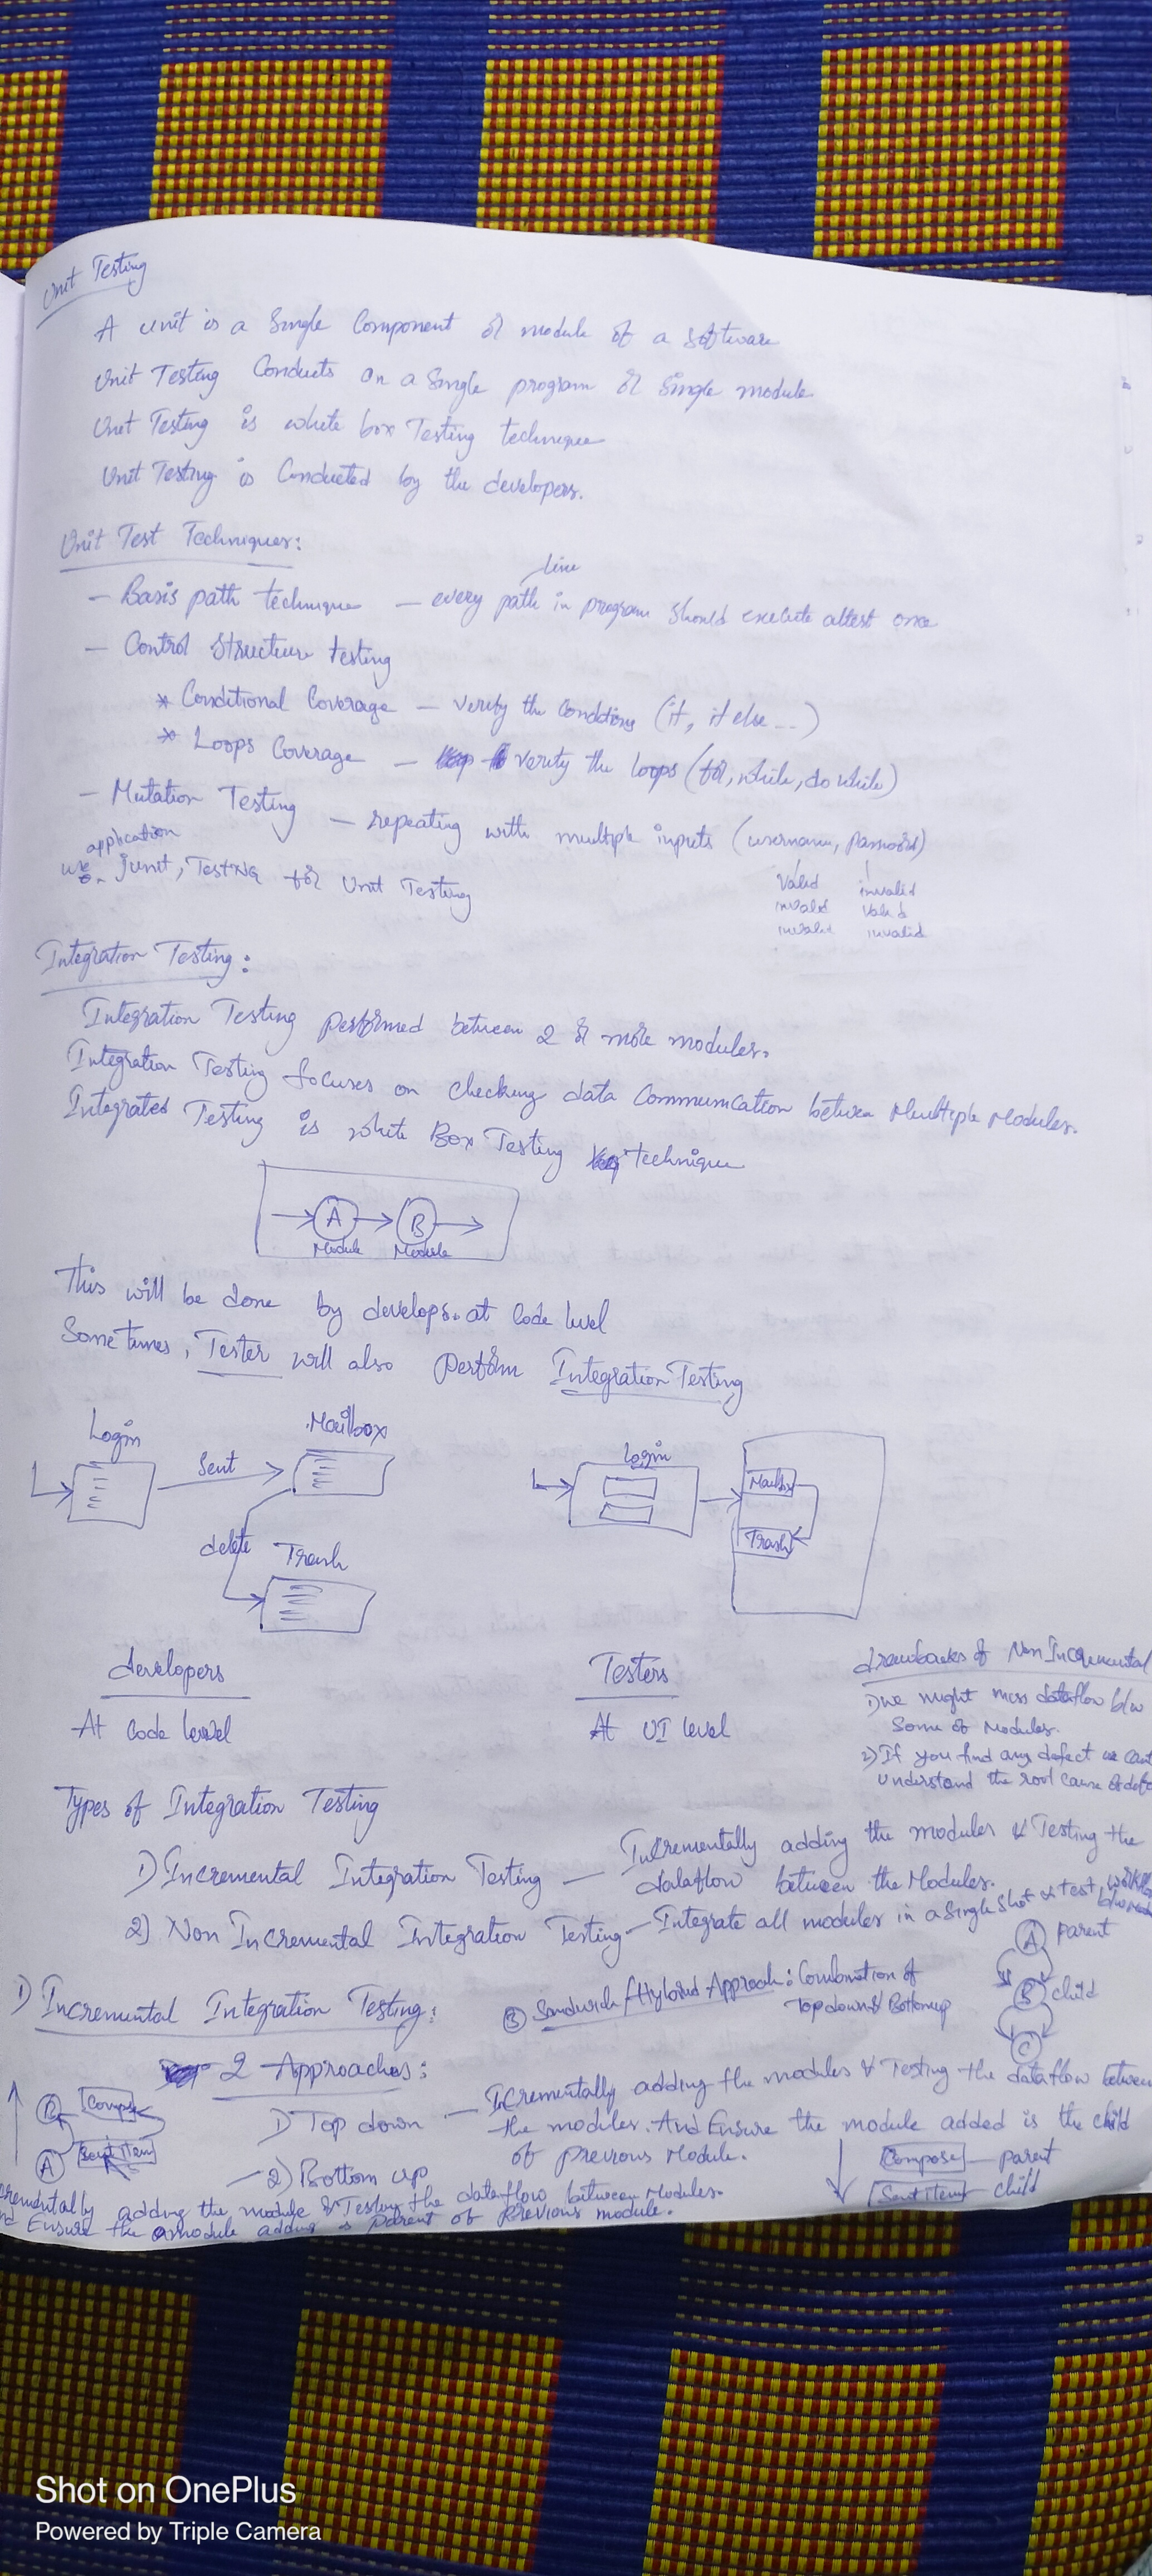 Unit Testing
A unit is a Single Component or module of a software
Unit Testing Conducts on a Single program or Single module
Unit Testing is white box Testing technique
Unit Testing is Conducted by the developers.
Unit Test Techniques:
line
- Basis path technique - every path in program should execute atlest once
- Control Structure testing
* Conditional Coverage - verify the Conditions (if, if else ...)
* Loops Coverage - verify the loops (for, while, do while)
- Mutation Testing - repeating with multiple inputs (username, password)
application
junit, TestNG for Unit Testing
Valid invalid
invalid valid
invalid invalid
Integration Testing:
Integration Testing performed between 2 or more modules.
Integration Testing focuses on checking data Communication between Multiple Modules.
Integrated Testing is white Box Testing technique
A B
Module Module
This will be done by develops. at Code level
Sometimes, Tester will also perform Integration Testing
Login Sent Mailbox
delete Trash
Login Mailbox
Trash
developers Testers
At Code level At UI level
drawbacks of Non Incremental
1) we might miss dataflow b/w
Some of Modules.
2) If you find any defect we Cant
Understand the root cause of defe
Types of Integration Testing
1) Incremental Integration Testing - Incrementally adding the modules & Testing the
dataflow between the Modules.
2) Non Incremental Integration Testing - Integrate all modules in a single shot & test
A parent
B child
C
1) Incremental Integration Testing:
3 Sandwich / Hybrid Approach: Combination of
Topdown & Bottomup
2 Approaches:
1) Top down - Incrementally adding the modules & Testing the dataflow between
the modules. And Ensure the module added is the child
of previous Module.
Compose - parent
Sent item - child
Compose
A Sent item
2) Bottom up
crementally adding the module & Testing the dataflow between Modules.
nd Ensure the module adding is parent of Previous module.
Shot on OnePlus
Powered by Triple Camera